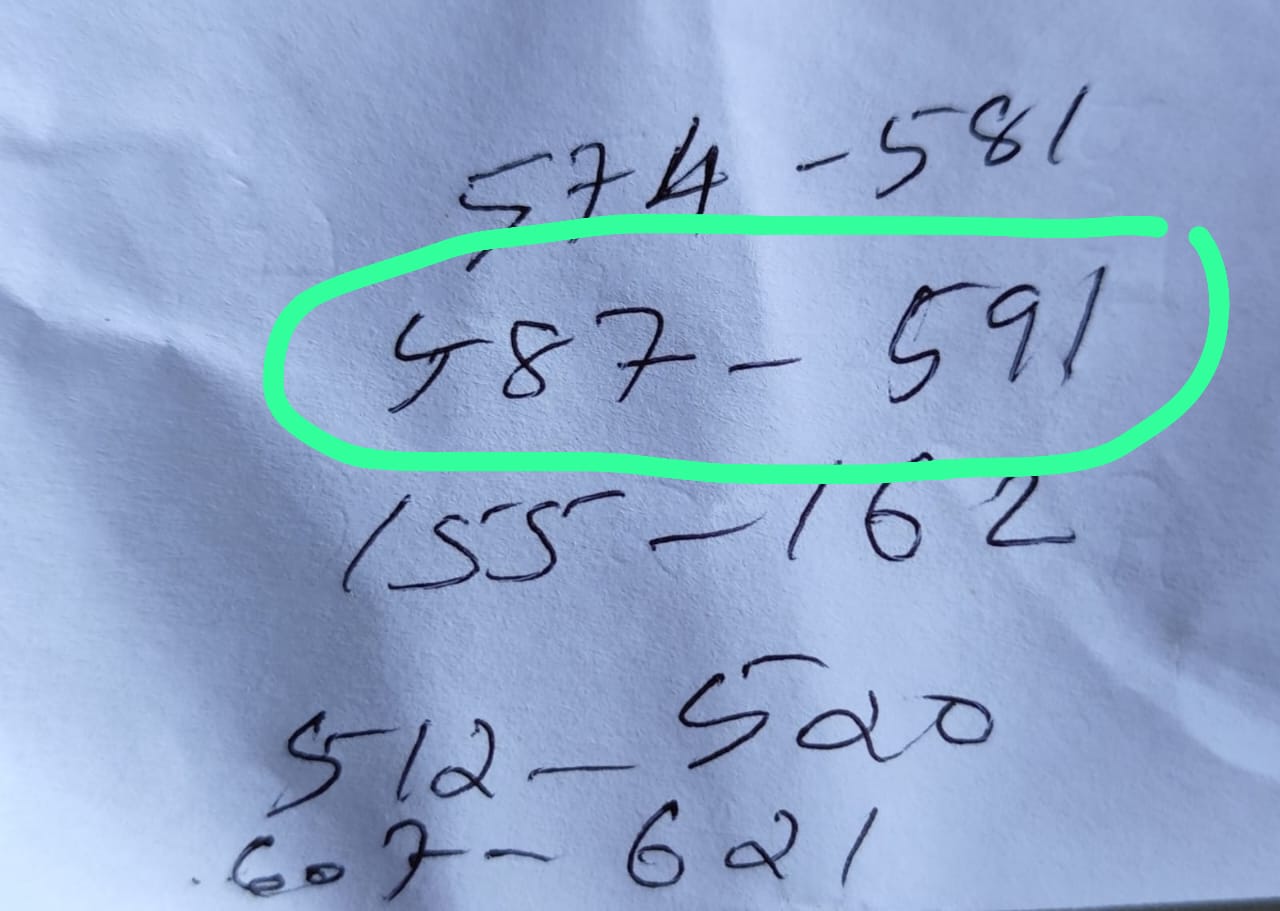 574 - 581
587 - 591
155 - 162
512 - 520
607 - 621